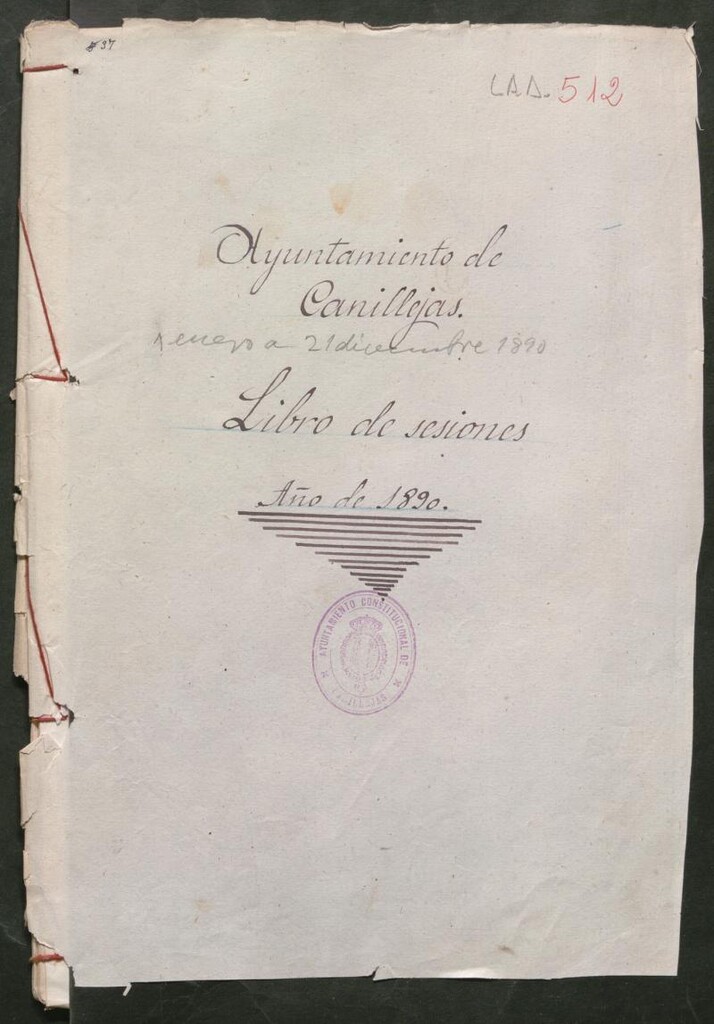 37
LAD. 512
Ayuntamiento de
Canillejas.
enero a 21 diciembre 1890
Libro de sesiones
Año de 1890.
AYUNTAMIENTO CONSTITUCIONAL DE